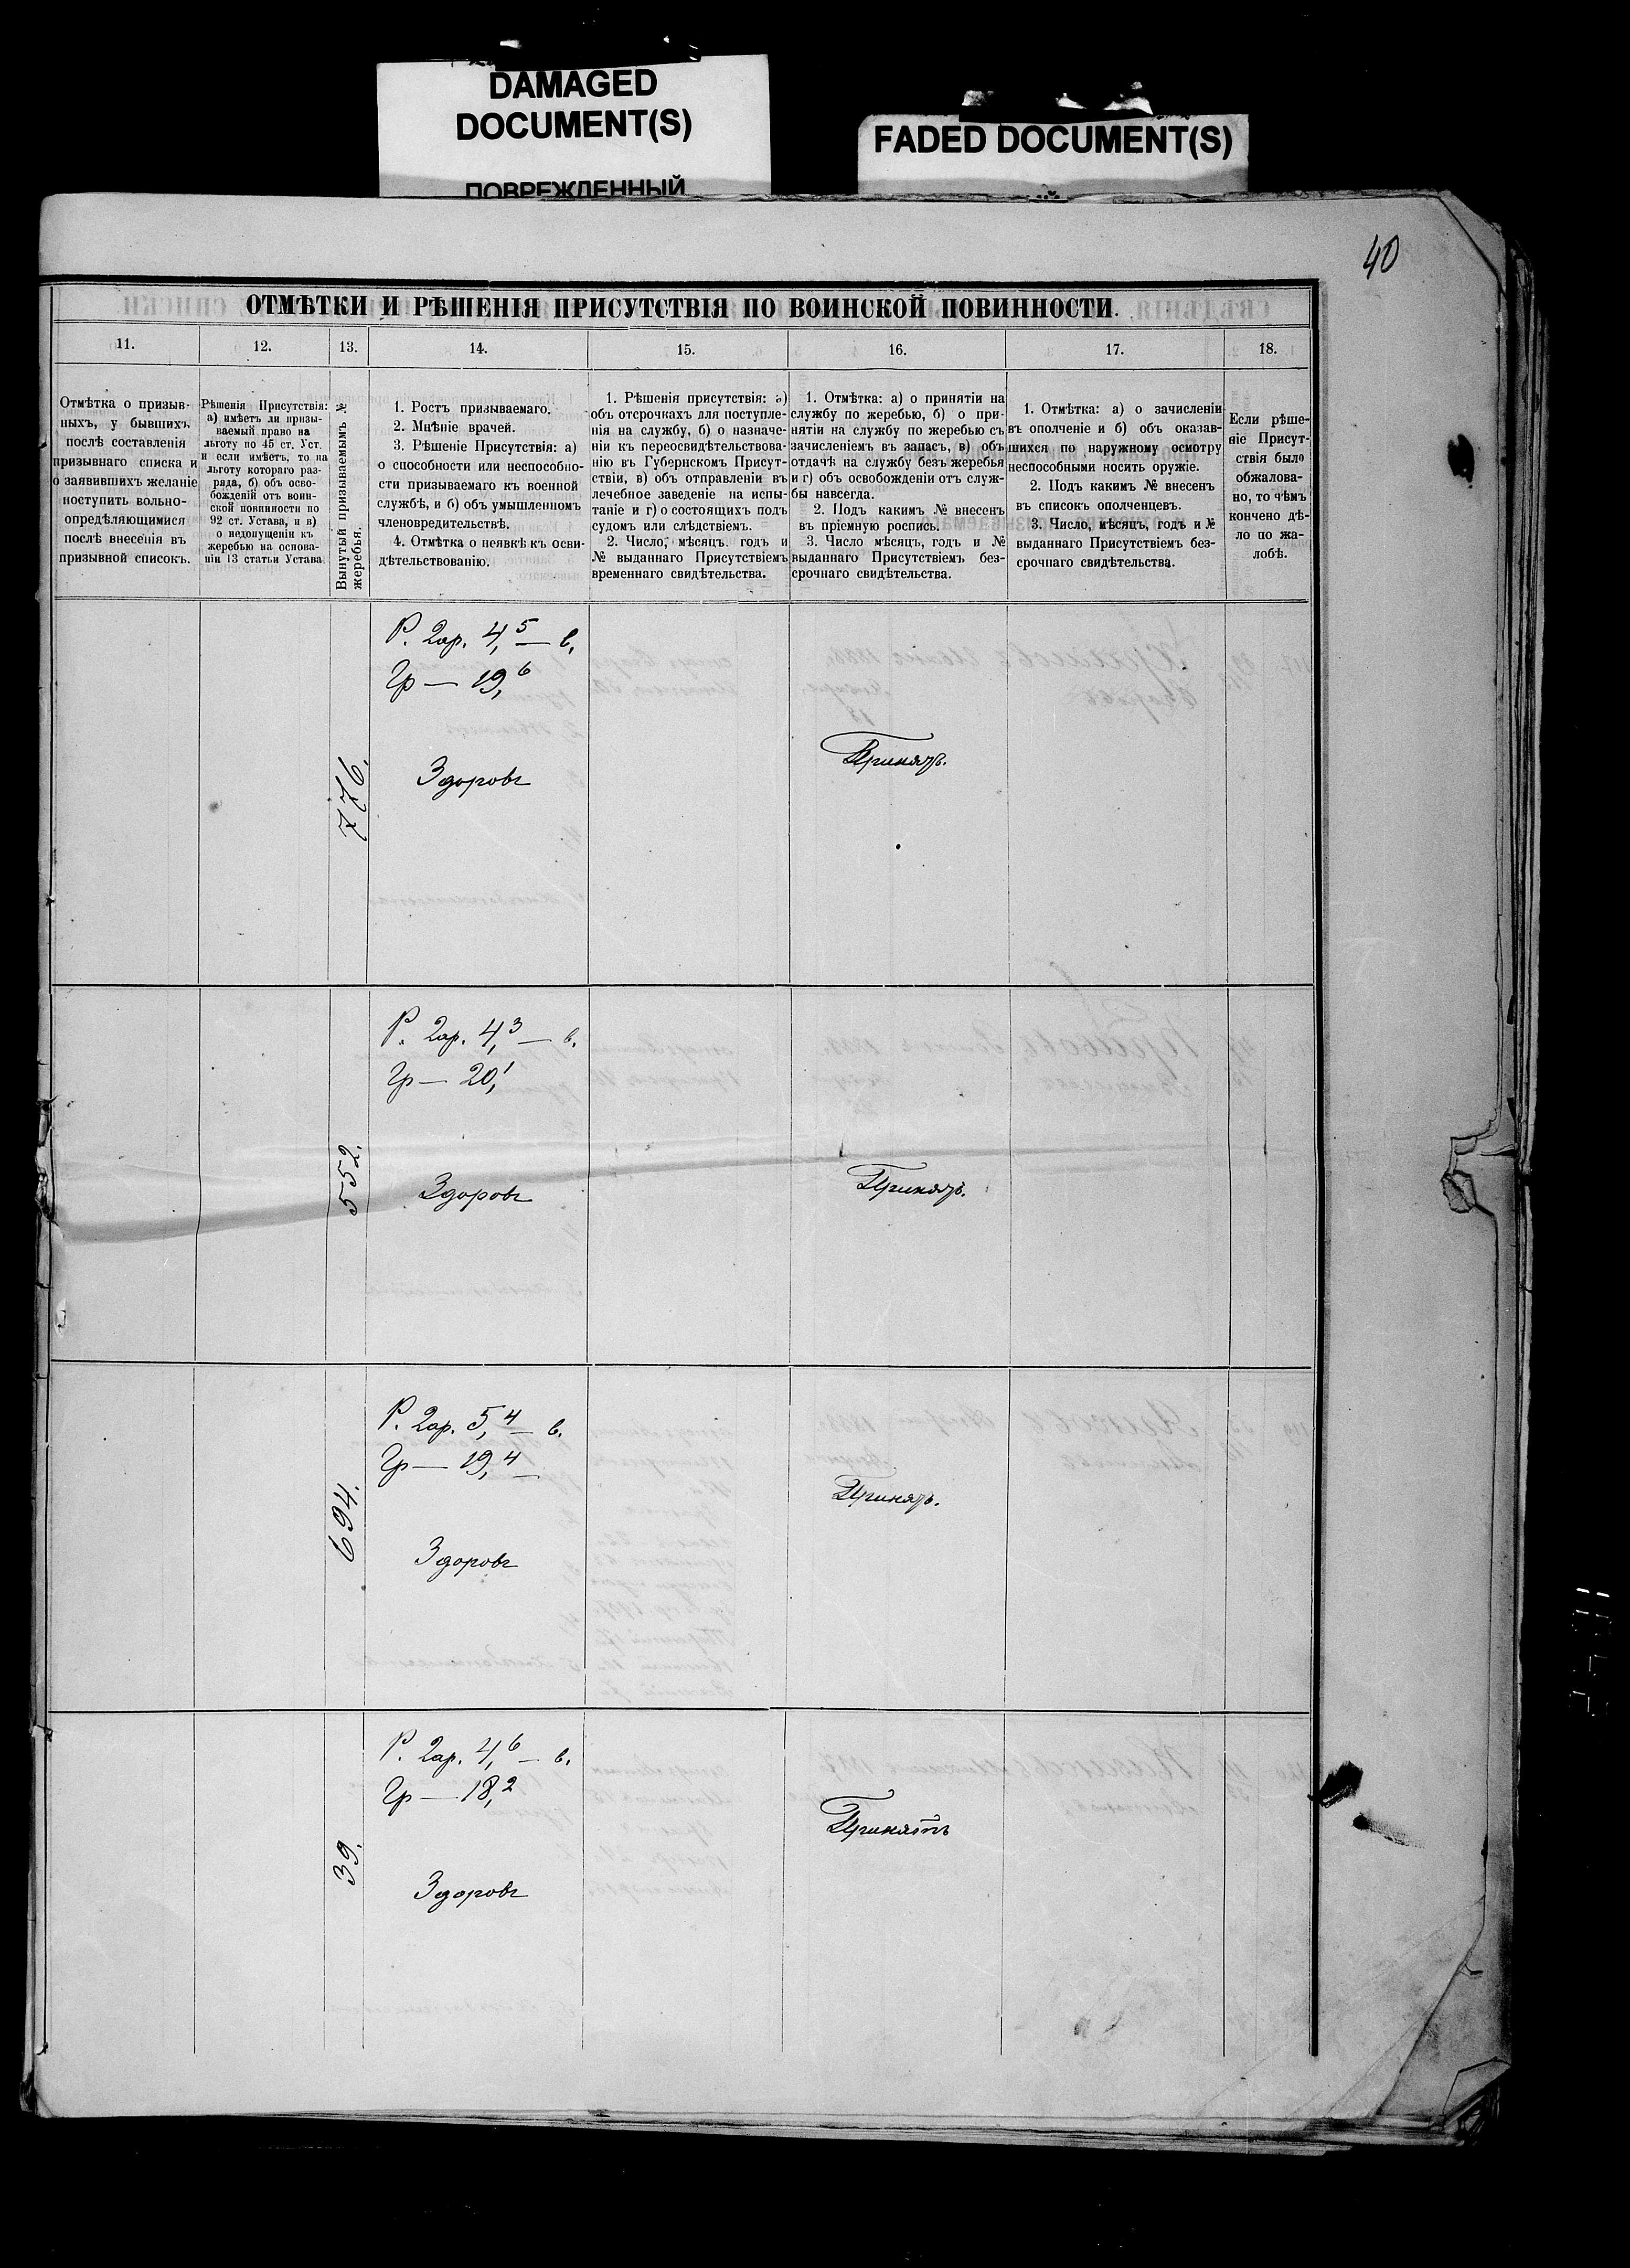 DAMAGED
DOCUMENT(S)
ПОВРЕЖДЕННЫЙ
FADED DOCUMENT(S)
40
ОТМѢТКИ И РѢШЕНІЯ ПРИСУТСТВІЯ ПО ВОИНСКОЙ ПОВИННОСТИ.
11.
12.
13.
14.
15.
16.
17.
18.
Отмѣтка о призыв-
ныхъ, у бывшихъ
послѣ составленія
призывнаго списка и
о заявившихъ желаніе
поступить вольно-
опредѣляющимися
послѣ внесенія въ
призывной списокъ.
Рѣшенія Присутствія:
а) имѣетъ ли призы-
ваемый право на
льготу по 45 ст. Уст.
и если имѣетъ, то на
льготу котораго раз-
ряда, б) объ осво-
божденій отъ воин-
ской повинности по
92 ст. Устава, и в)
о недопущеніи къ
жеребью на основа-
ніи 13 статьи Устава
Вынутый призываемымъ №
жеребья.
1. Ростъ призываемаго.
2. Мнѣніе врачей.
3. Рѣшеніе Присутствія: а)
о способности или неспособно-
сти призываемаго къ военной
службѣ, и б) объ умышленномъ
членовредительствѣ.
4. Отмѣтка о неявкѣ къ осви-
дѣтельствованію.
1. Рѣшенія присутствія: а)
объ отсрочкахъ для поступле-
нія на службу, б) о назначе-
ніи къ переосвидѣтельствова-
нію въ Губернскомъ Присут-
ствіи, в) объ отправленіи въ
лечебное заведеніе на испы-
таніе и г) о состоящихъ подъ
судомъ или слѣдствіемъ.
2. Число, мѣсяцъ, годъ и
№ выданнаго Присутствіемъ
временнаго свидѣтельства.
1. Отмѣтка: а) о принятіи на
службу по жеребью, б) о при-
нятіи на службу по жеребью съ
зачисленіемъ въ запасъ, в) объ
отдачѣ на службу безъ жеребья
и г) объ освобожденіи отъ служ-
бы навсегда.
2. Подъ какимъ № внесенъ
въ пріемную роспись.
3. Число мѣсяцъ, годъ и №
выданнаго Присутствіемъ без-
срочнаго свидѣтельства.
1. Отмѣтка: а) о зачисленіи
въ ополченіе и б) объ оказав-
шихся по наружному осмотру
неспособными носить оружіе.
2. Подъ какимъ № внесенъ
въ списокъ ополченцевъ.
3. Число, мѣсяцъ, годъ и №
выданнаго Присутствіемъ без-
срочнаго свидѣтельства.
Если рѣше-
ніе Присут-
ствія было
обжалова-
но, то чѣмъ
кончено дѣ-
ло по жа-
лобѣ.
776.
Р. 2ар. 4,5 — в.
Гр — 19,6
Здоровъ
Принятъ.
552.
Р. 2ар. 4,3 — в.
Гр — 20,1
Здоровъ
Принятъ.
694.
Р. 2ар. 5,4 — в.
Гр — 19,4 —
Здоровъ
Принятъ.
39.
Р. 2ар. 4,6 — в.
Гр — 18,2
Здоровъ
Принятъ